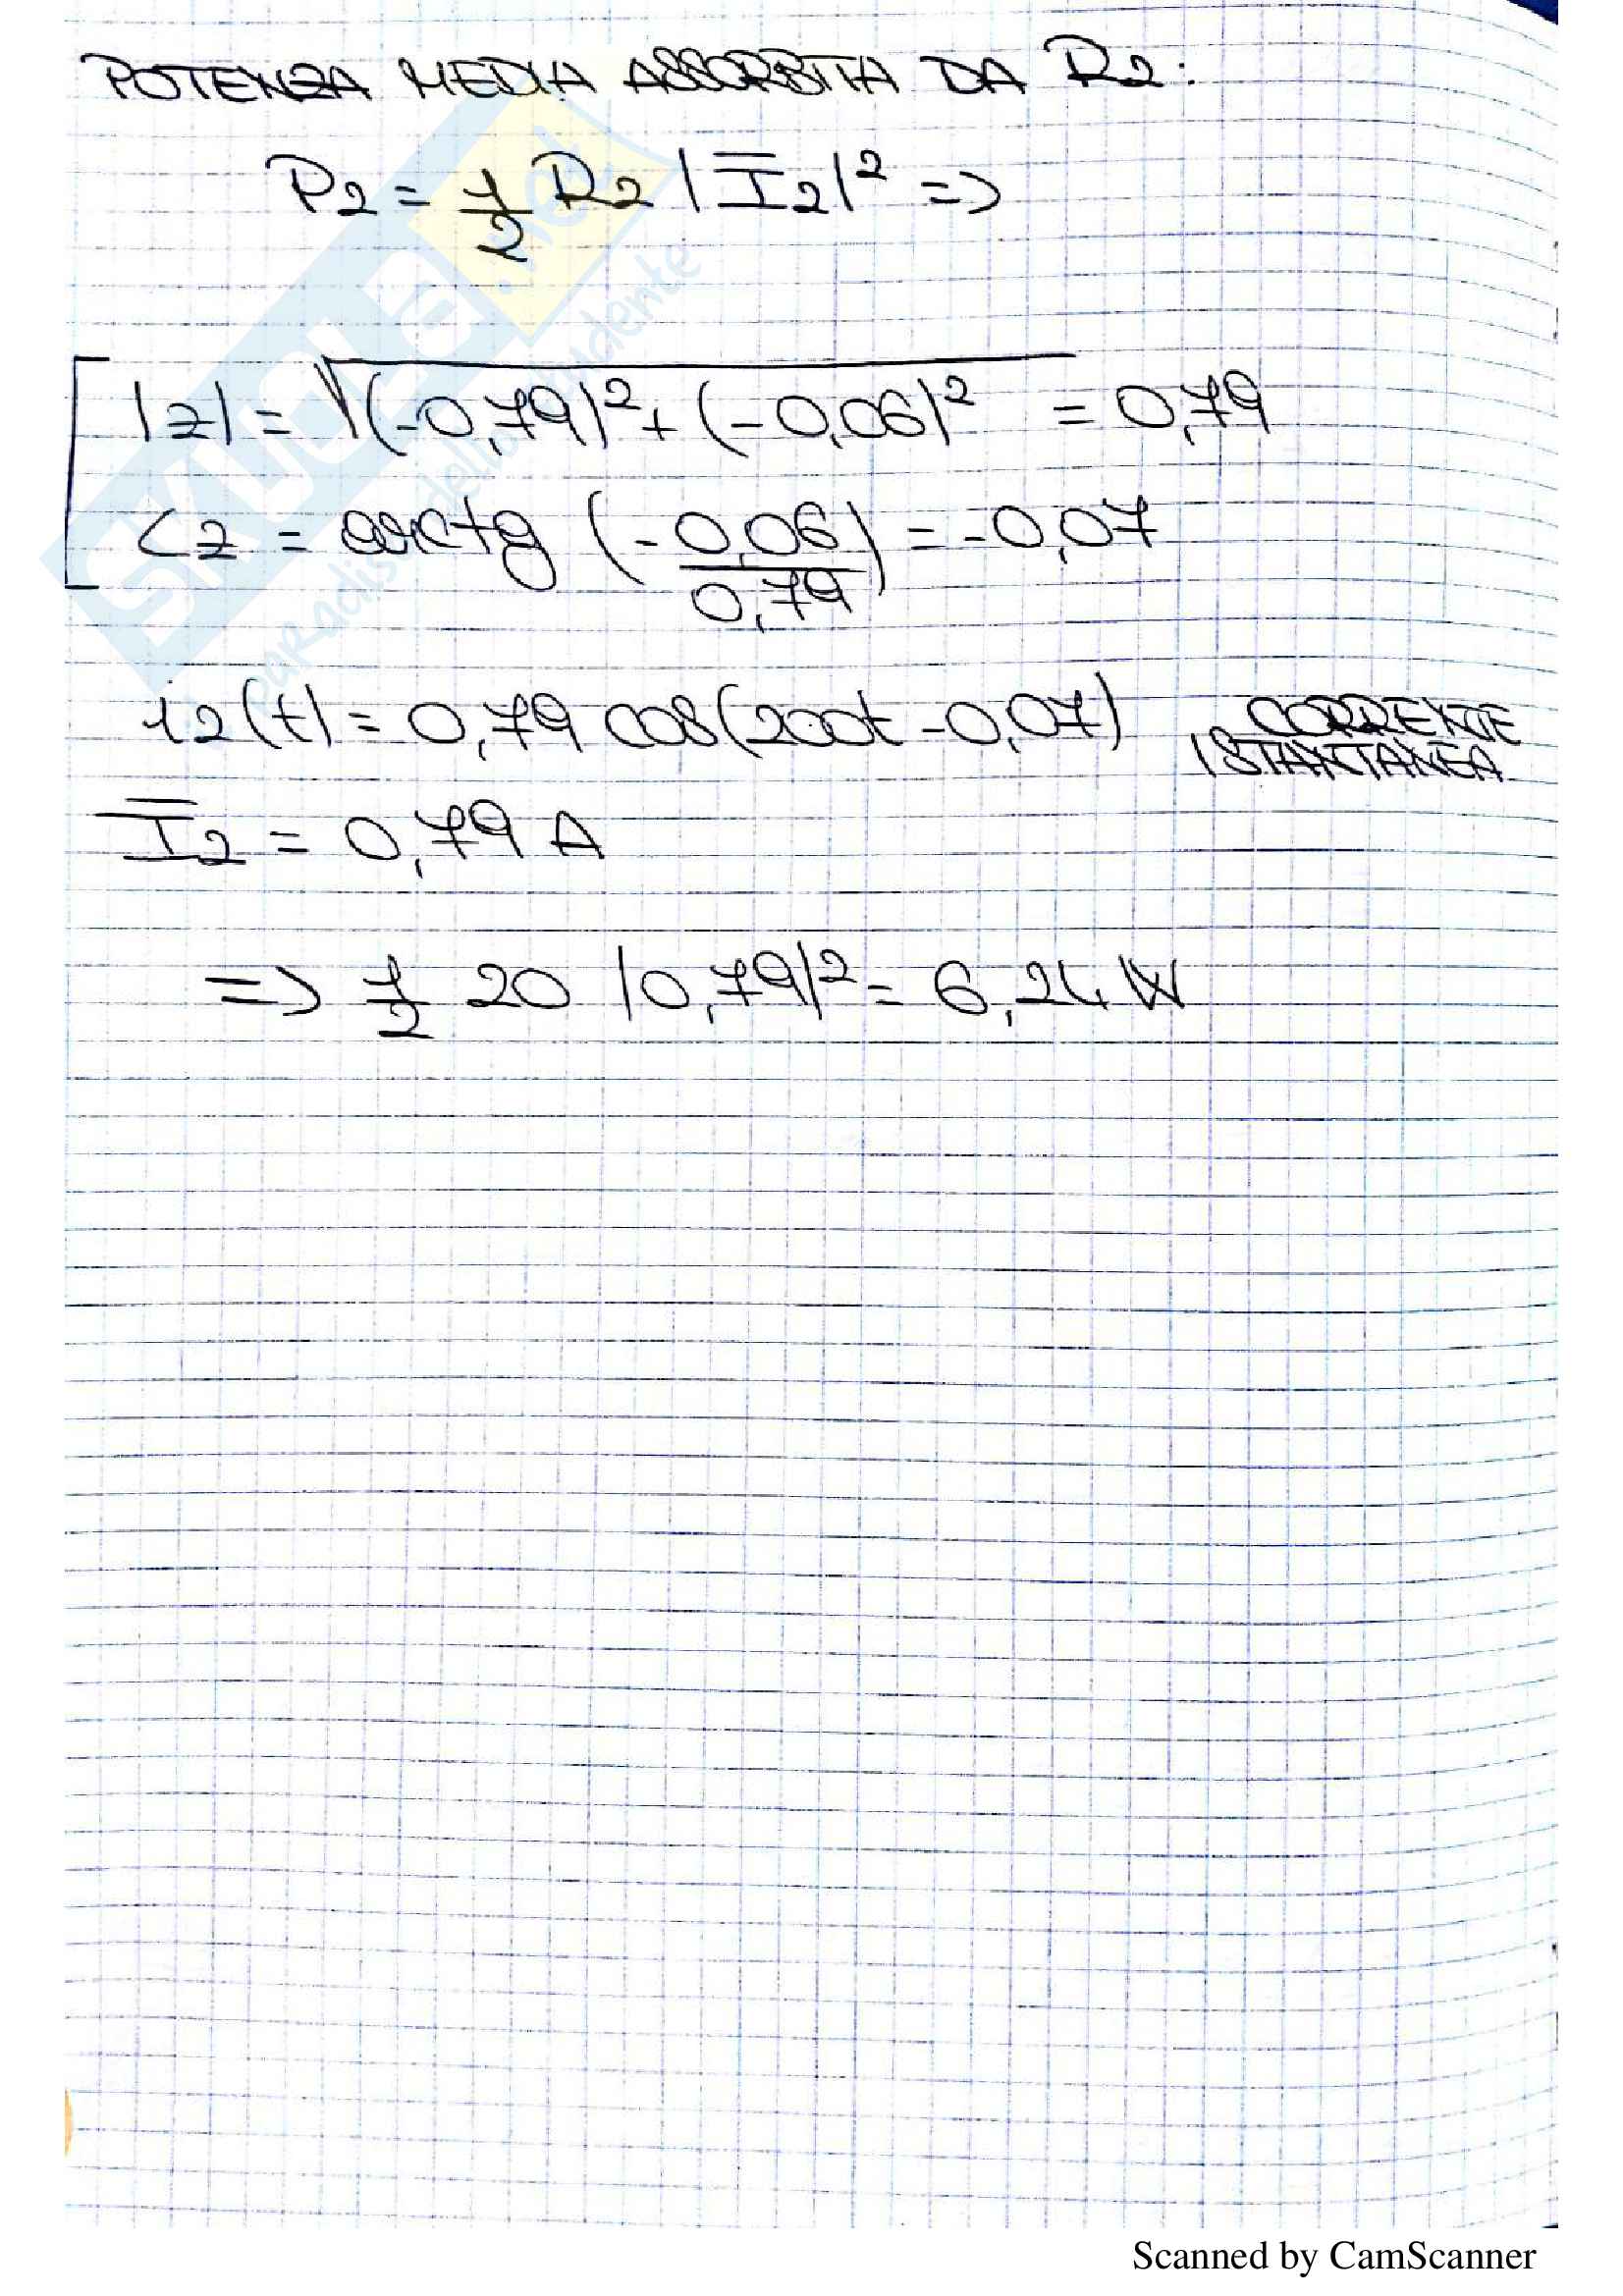 POTENZA MEDIA ASSORBITA DA R2:
P2 = 1/2 R2 |I̅2|² =>
|z| = √(-0,79)² + (-0,06)² = 0,79
<z = arctg (-0,06/0,79) = -0,07
i2(t) = 0,79 cos(200t - 0,07) CORRENTE ISTANTANEA
I̅2 = 0,79 A
=> 1/2 20 |0,79|² = 6,24 W
SKUOLA.net
paradiso dello studente
Scanned by CamScanner